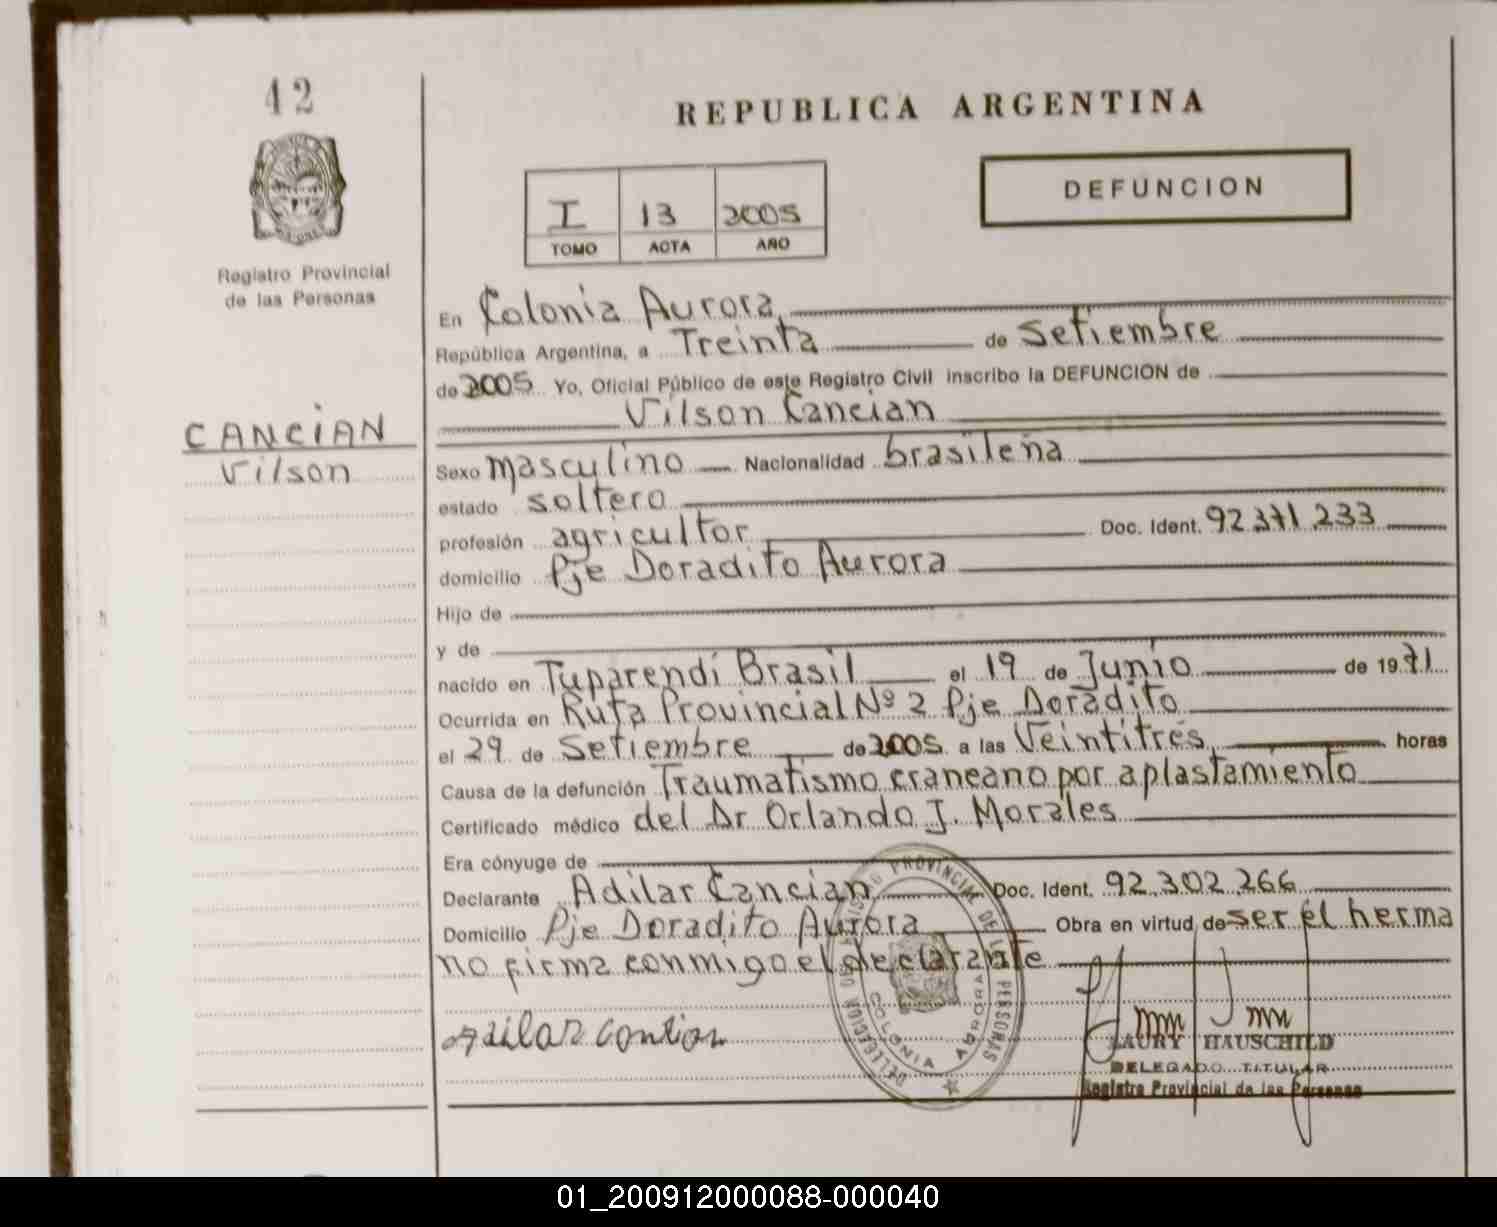 42
REPUBLICA ARGENTINA
DEFUNCION
I 13 2005
TOMO ACTA AÑO
Registro Provincial
de las Personas
En Colonia Aurora
República Argentina, a Treinta de Setiembre
de 2005 Yo, Oficial Público de este Registro Civil inscribo la DEFUNCION de
Vilson Cancian
CANCIAN
Vilson
Sexo masculino Nacionalidad brasileña
estado soltero
profesión agricultor Doc. Ident. 92.371.233
domicilio Pje Doradito Aurora
Hijo de
y de
nacido en Tuparendi Brasil el 19 de Junio de 1971
Ocurrida en Ruta Provincial Nº 2 Pje Doradito
el 29 de Setiembre de 2005 a las Veintitrés horas
Causa de la defunción Traumatismo craneano por aplastamiento
Certificado médico del Dr Orlando J. Morales
Era cónyuge de
Declarante Adilar Cancian Doc. Ident. 92.302.266
Domicilio Pje Doradito Aurora Obra en virtud de ser el herma
no firma conmigo el declarante
DELEGACION DEL REGISTRO PROVINCIAL DE LAS PERSONAS
COLONIA AURORA
LAURY HAUSCHILD
DELEGADO TITULAR
Registro Provincial de las Personas
01_200912000088-000040